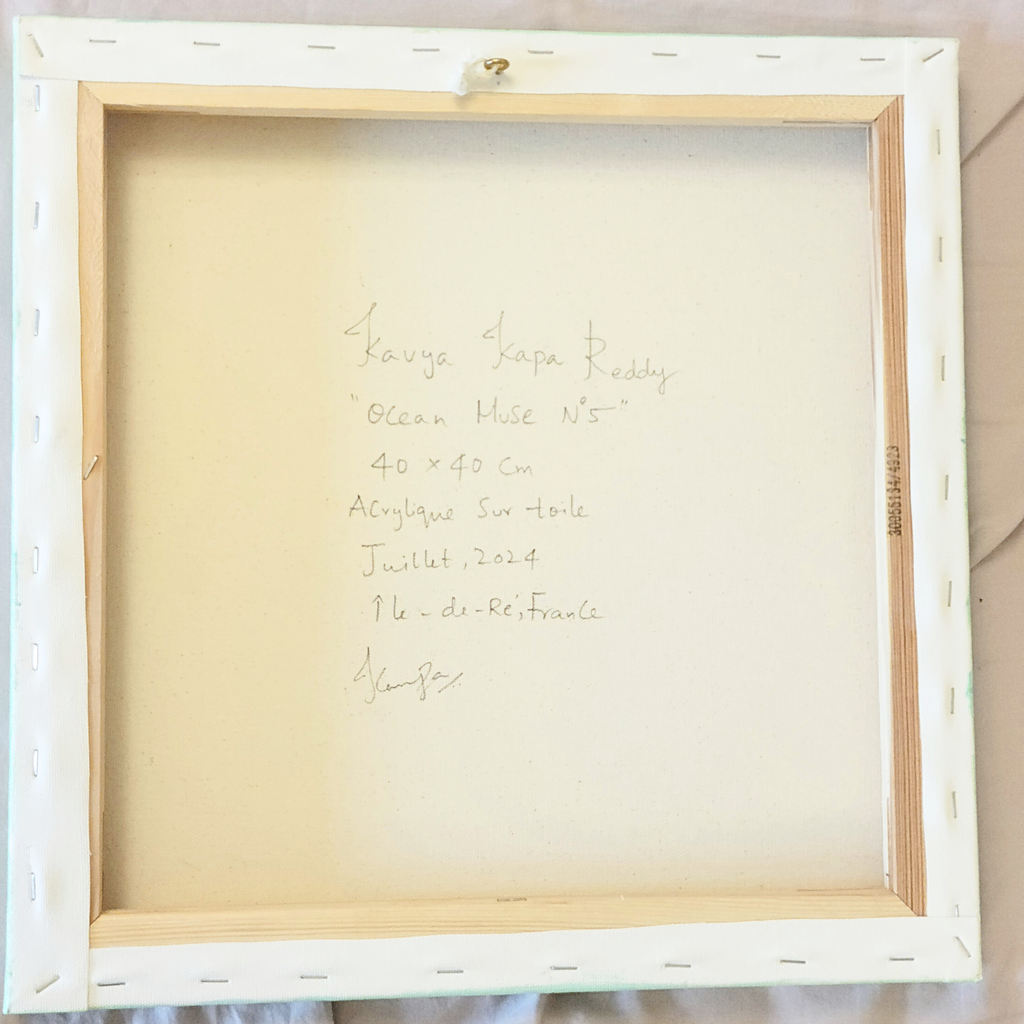 Kavya Kapa Reddy
"Ocean Muse N°5"
40 × 40 cm
Acrylique sur toile
Juillet, 2024
Île-de-Ré, France
30055134/4923